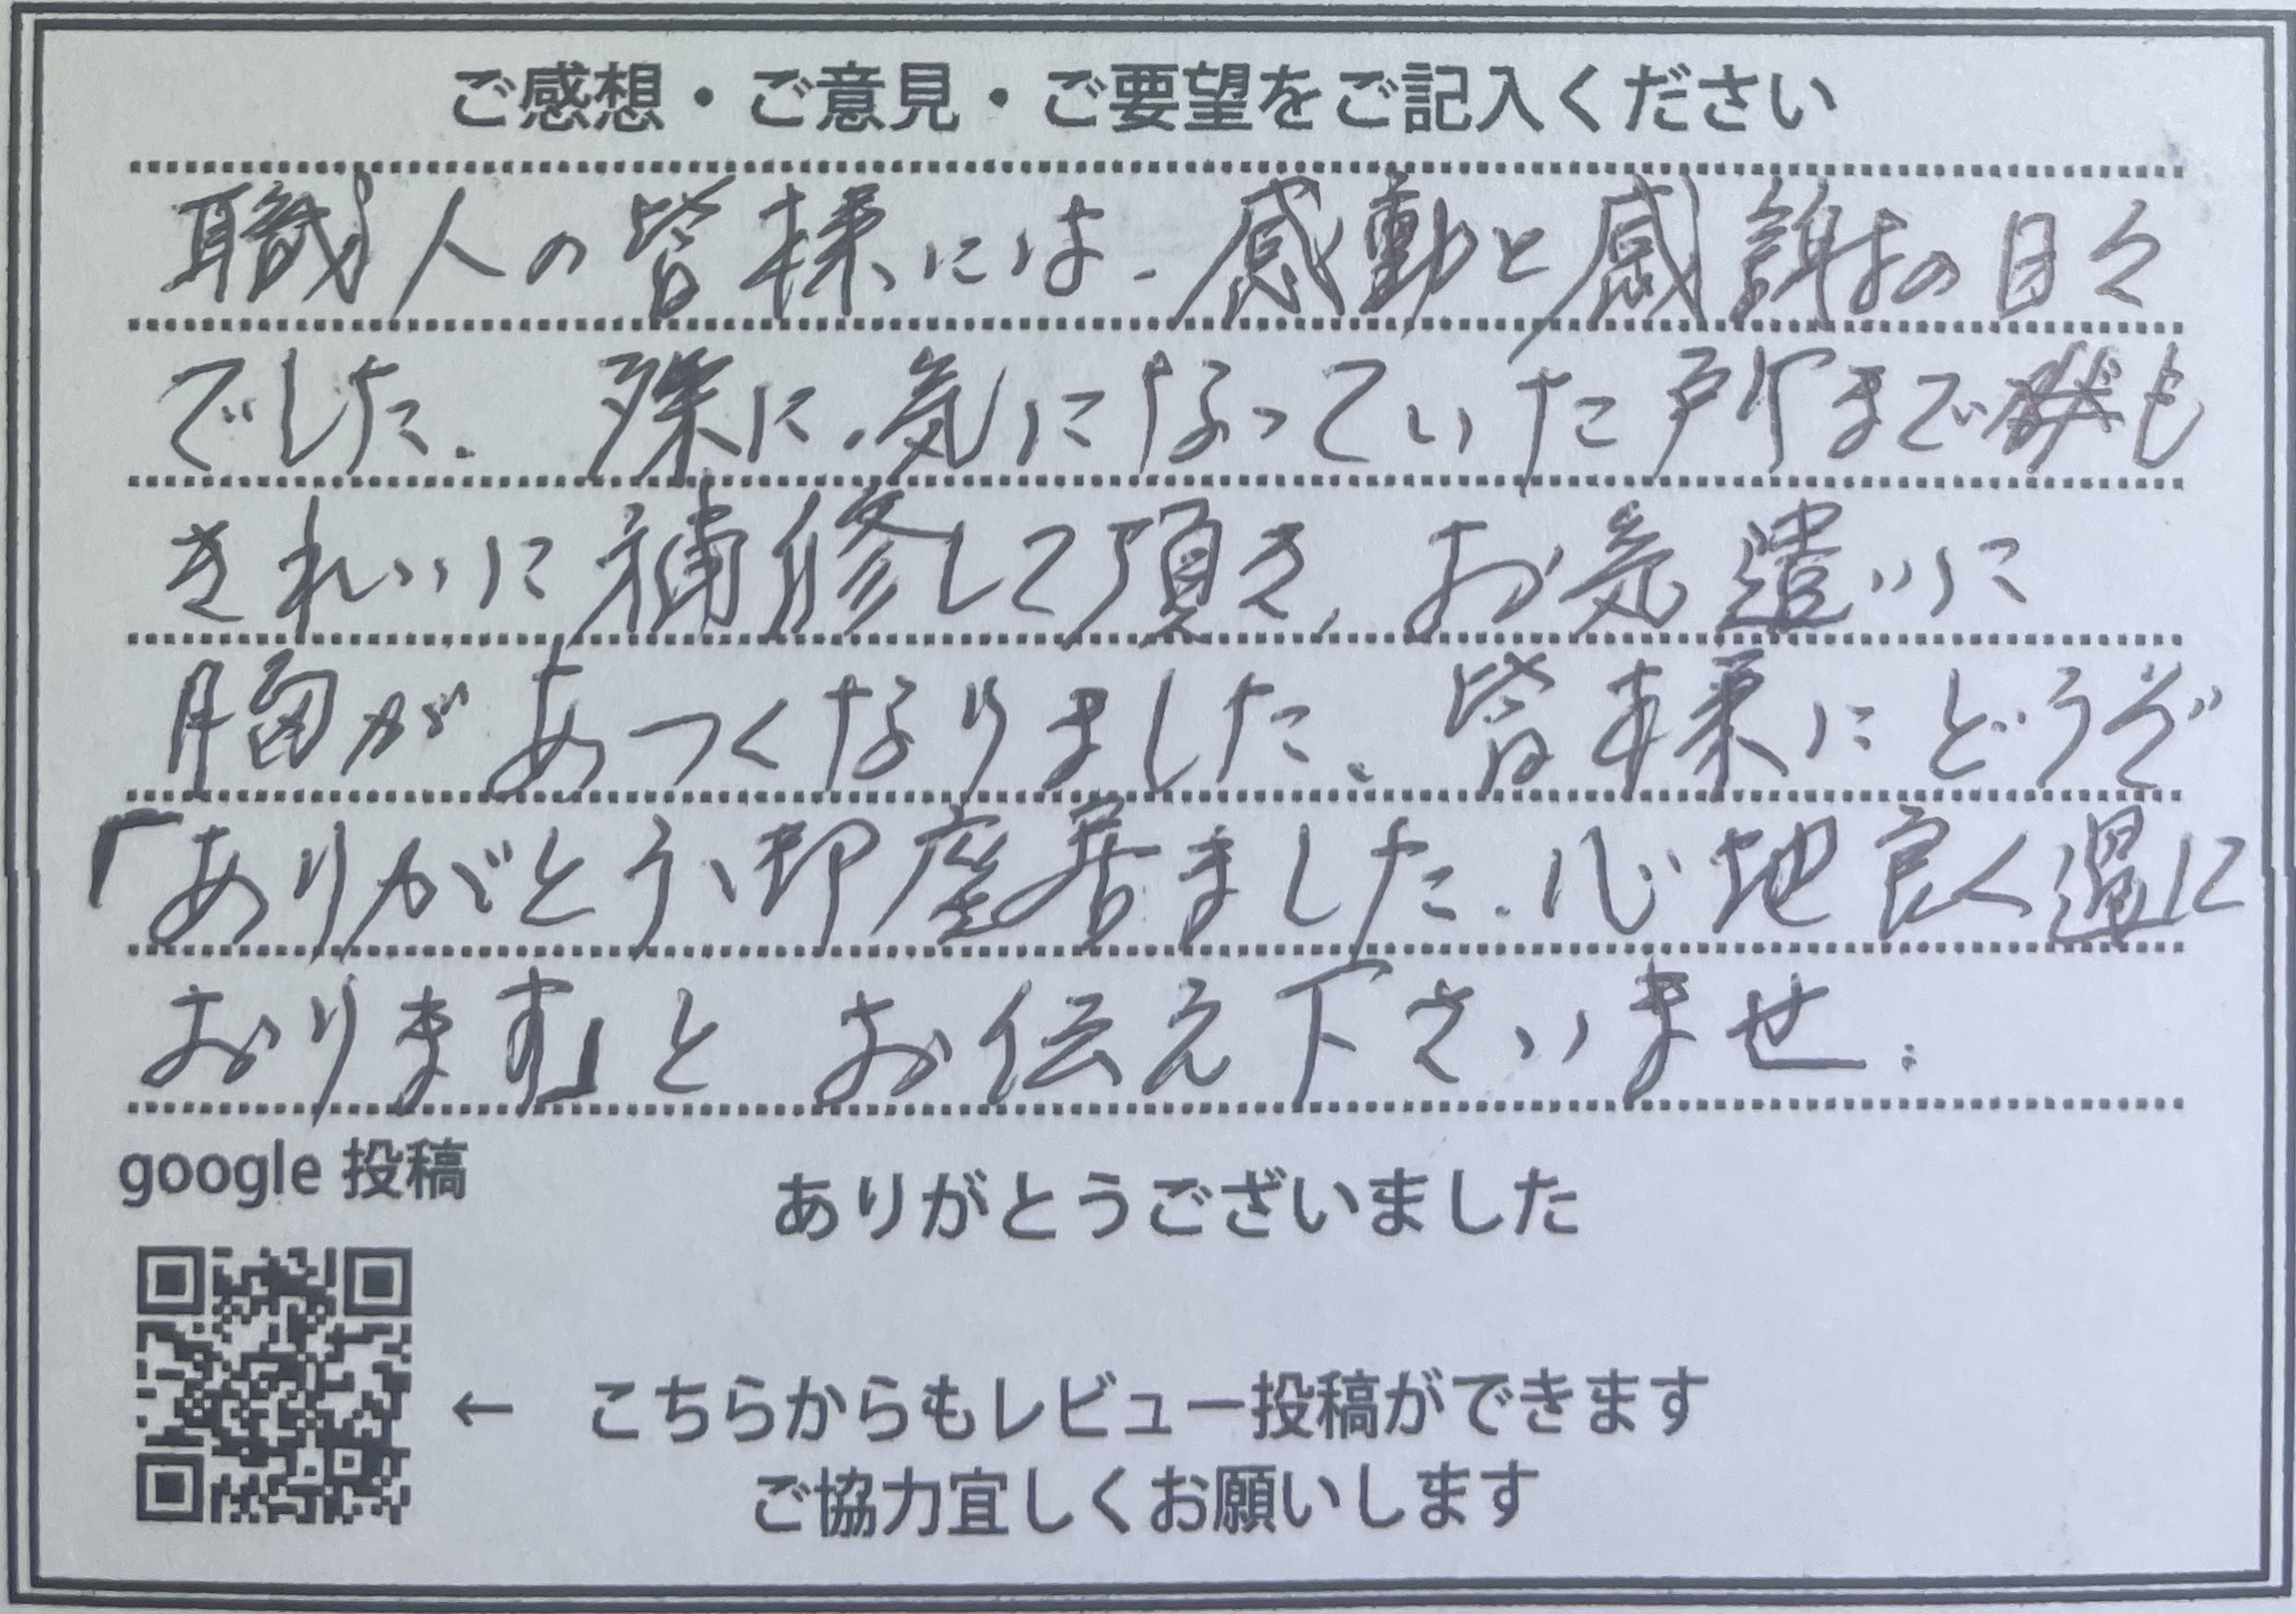 ご感想・ご意見・ご要望をご記入ください
職人の皆様には、感動と感謝の日々
でした。殊に、気になっていた所までも
きれいに補修して頂き、お気遣いに
胸があつくなりました。皆様にどうぞ
「ありがとう御座居ました。心地良く過に
おります」とお伝え下さいませ.
google 投稿
ありがとうございました
← こちらからもレビュー投稿ができます
ご協力宜しくお願いします